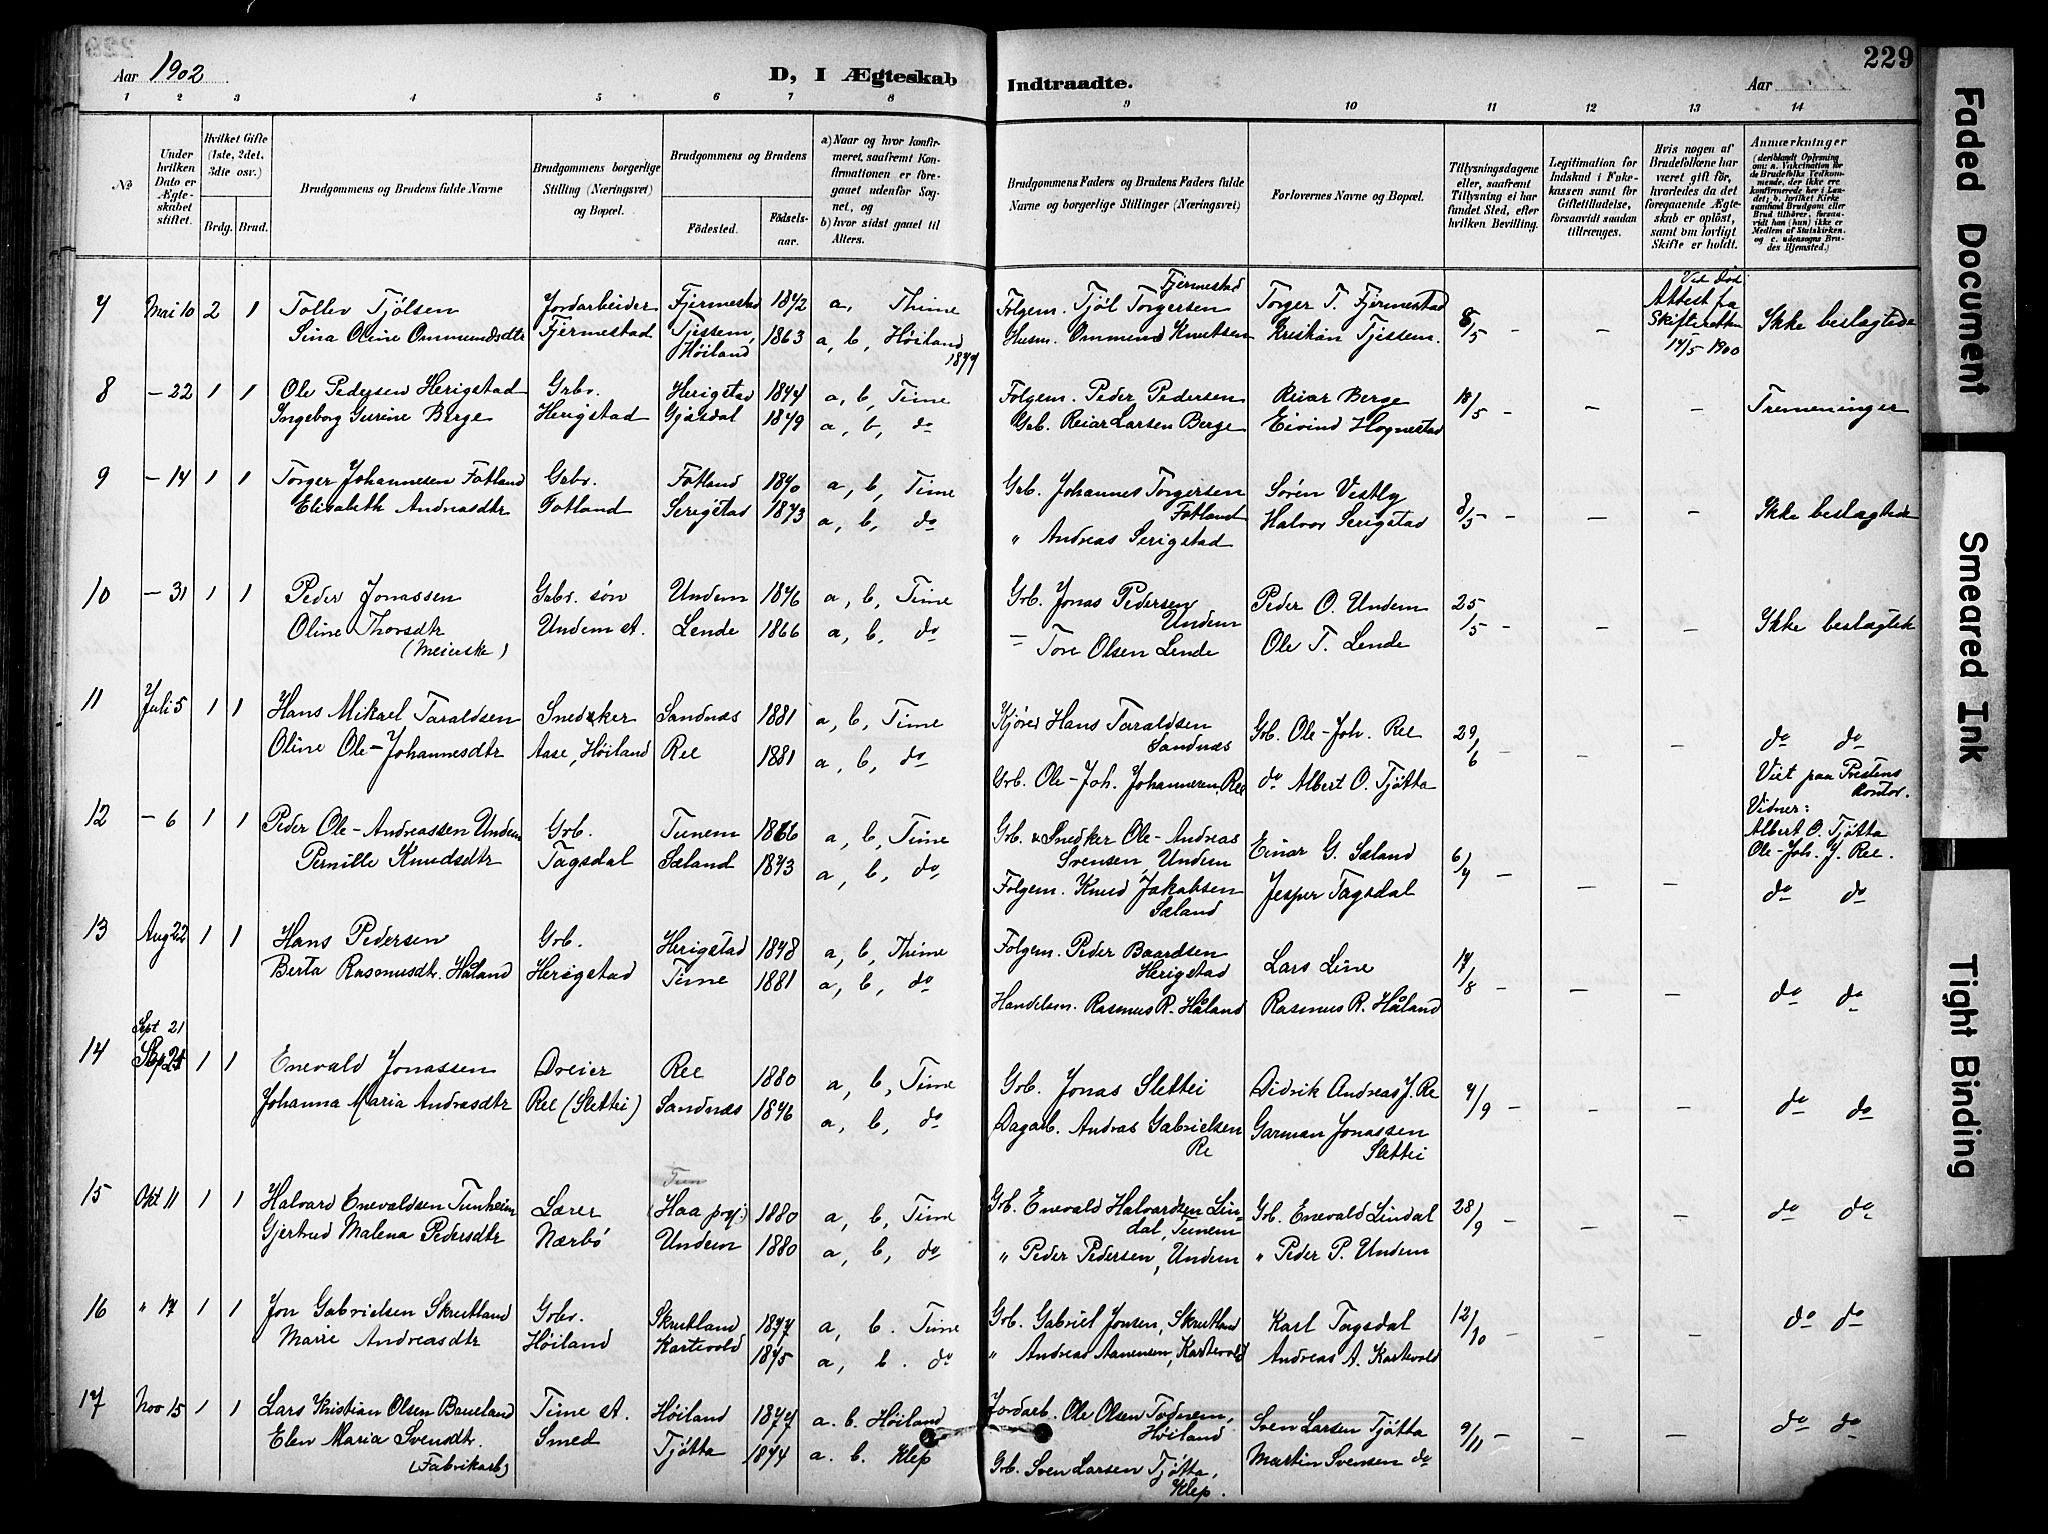 229
Aar 1902
D, I Ægteskab Indtraadte.
Aar
1 2 3 4 5 6 7 8 9 10 11 12 13 14
No
Under hvilken Dato er Ægteskabet stiftet.
Hvilket Gifte (1ste, 2det, 3die osv.)
Brdg. Brud.
Brudgommens og Brudens fulde Navne
Brudgommens borgerlige Stilling (Næringsvei) og Bopæl.
Brudgommens og Brudens
Fødested. Fødselsaar.
a) Naar og hvor konfirmeret, saafremt Konfirmationen er foregaaet udenfor Sognet, og
b) hvor sidst gaaet til Alters.
Brudgommens Faders og Brudens Faders fulde Navne og borgerlige Stillinger (Næringsvei)
Forlovernes Navne og Bopæl.
Tillysningsdagene eller, saafremt Tillysning ei har fundet Sted, efter hvilken Bevilling.
Legitimation for Indskud i Enkekassen samt for Giftetilladelse, forsaavidt saadan tiltrænges.
Hvis nogen af Brudefolkene har været gift før, hvorledes da det foregaaende Ægteskab er opløst, samt om lovligt Skifte er holdt.
Anmærkninger
(deriblandt Oplysning om: a. Vakcination for de Brudefolks Vedkommende, der ikke ere konfirmerede her i Landet; b. hvilket Kirkesamfund Brudgom eller Brud tilhører, forsaavidt han (hun) ikke er Medlem af Statskirken, og c. udensogns Brudes Hjemsted.)
7 Mai 10 2 1 Tollev Tjølsen Jordarbeider Fjermestad 1842 a, Thime Folgem. Tjøl Torgersen Fjermestad Torger T. Fjermestad 8/5 – – Ved død Attest fra Skifteretten 14/5 1900 Ikke beslægtede
Sina Oline Ommundsdtr Fjermestad Tjessem, Høiland 1863 a, b, Høiland 1877 Husm. Ommund Knutsen Kristian Tjessem.
8 – 22 1 1 Ole Pedersen Herigstad Grbr. Herigstad 1874 a, b, Time Folgem. Peder Pedersen Reiar Berge 18/5 – – – Tremeninger
Ingeborg Gurine Berge Herigstad Gjæsdal 1879 a, b, do Grb. Reiar Larsen Berge Eivind Hognestad
9 – 14 1 1 Torger Johannesen Fotland Gabr. Fotland 1870 a, b, Time Grb. Johannes Torgersen Fotland Søren Vestly 8/5 – – – Ikke beslægtede
Elisabeth Andreasdtr Fotland Serigstad 1873 a, b, do " Andreas Serigstad Halvor Serigstad
10 – 31 1 1 Peder Jonassen Gabr. søn Undem 1876 a, b, Time Grb. Jonas Pedersen Undem Peder O. Undem 25/5 – – Ikke beslægtede
Oline Thorsdtr Undem st. Lende 1866 a, b, do – Tore Olsen Lende Ole T. Lende
(Meierske)
11 Juli 5 1 1 Hans Mikael Taraldsen Snedker Sandnæs 1881 a, b, Time Kjører Hans Taraldsen Sandnæs Grb. Ole-Joh. Ree 29/6 – – do do
Oline Ole-Johannesdtr Aase, Høiland Ree 1881 a, b, do Grb. Ole-Joh. Johannesen, Ree do Albert O. Tjøtta Viet paa Prestens kontor. Vidner: Albert O. Tjøtta Ole-Joh. J. Ree.
12 – 6 1 1 Peder Ole-Andreassen Undem Grb. Tunem 1866 a, b, Time Grb. & Snedker Ole-Andreas Svensen, Undem Einar G. Sæland 6/7 – – – do do
Pernille Knudsdtr Tagsdal Sæland 1873 a, b, do Folgem. Knud Jakobsen Sæland Jesper Tagsdal
13 Aug 22 1 1 Hans Pedersen Grb. Herigstad 1878 a, b, Thime Folgem. Peder Baardsen Herigstad Lars Line 17/8 – – – do do
Berta Rasmusdtr. Håland Herigstad Time 1881 a, b, do Handelsm. Rasmus R. Håland Rasmus R. Håland
Sept 21
14 1 1 Enevald Jonassen Dreier Ree 1880 a, b, Time Grb. Jonas Slettei Didrik Andreas J. Re 7/9 – – – do do
Johanna Maria Andreasdtr Ree (Slettei) Sandnæs 1876 a, b, do Dagarb. Andras Gabrielsen Re Garman Jonassen Slettei
Tun
15 Okt 11 1 1 Halvard Enevaldsen Tunheim Lærer (Haa prg:) 1880 a, b, Time Grb. Enevald Halvardsen Lindal, Tunem Grb. Enevald Lindal 28/9 – – – do do
Gjertrud Malena Pedersdtr Nærbø Undem 1880 a, b, do " Peder Pedersen, Undem " Peder P. Undem
16 " 17 1 1 Jon Gabrielsen Skrutland Grbr. Skrutland 1877 a, b. Time Grb. Gabriel Jonsen, Skrutland Karl Tagsdal 12/10 – – – do do
Marie Andreasdtr Høiland Kartevold 1875 a, b. do " Andreas Aanensen, Kartevold Andreas A. Kartevold
17 Nov 15 1 1 Lars Kristian Olsen Baueland Time st. Høiland 1877 a. b. Høiland Jordarb. Ole Olsen Todnem, Høiland Sven Larsen Tjøtta 9/11 – – – do do
Elen Maria Svensdtr. Smed Tjøtta 1874 a. b. Klep Grb. Sven Larsen Tjøtta, Klep. Martin Svensen do
(Fabrikarb)
Faded Document
Smeared Ink
Tight Binding